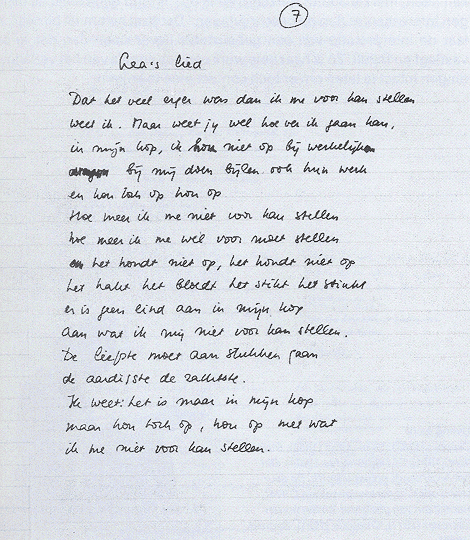 7
Lea's lied
Dat het veel erger was dan ik me voor kan stellen
weet ik. Maar weet jy wel hoe ver ik gaan kan,
in mijn kop, ik niet op bij werkelijk
bij mij doen bijlen ook hun werk
en hou toch op hou op
Hoe meer ik me niet voor kan stellen
hoe meer ik me wel voor moet stellen
en het houdt niet op, het houdt niet op
het hakt het bloedt het stikt het stinkt
er is geen eind aan in mijn kop
aan wat ik mij niet voor kan stellen.
De liefste moet aan stukken gaan
de aardigste de zachtste.
Ik weet: het is maar in mijn kop
maar hou toch op, hou op met wat
ik me niet voor kan stellen.